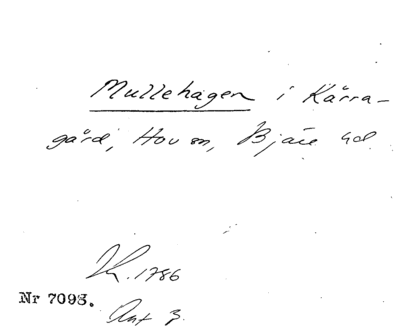 Mullehagen i Kärra-
gård, Hov sn, Bjäre hd.
K. 1786
Nr 7098.
Ant 3.